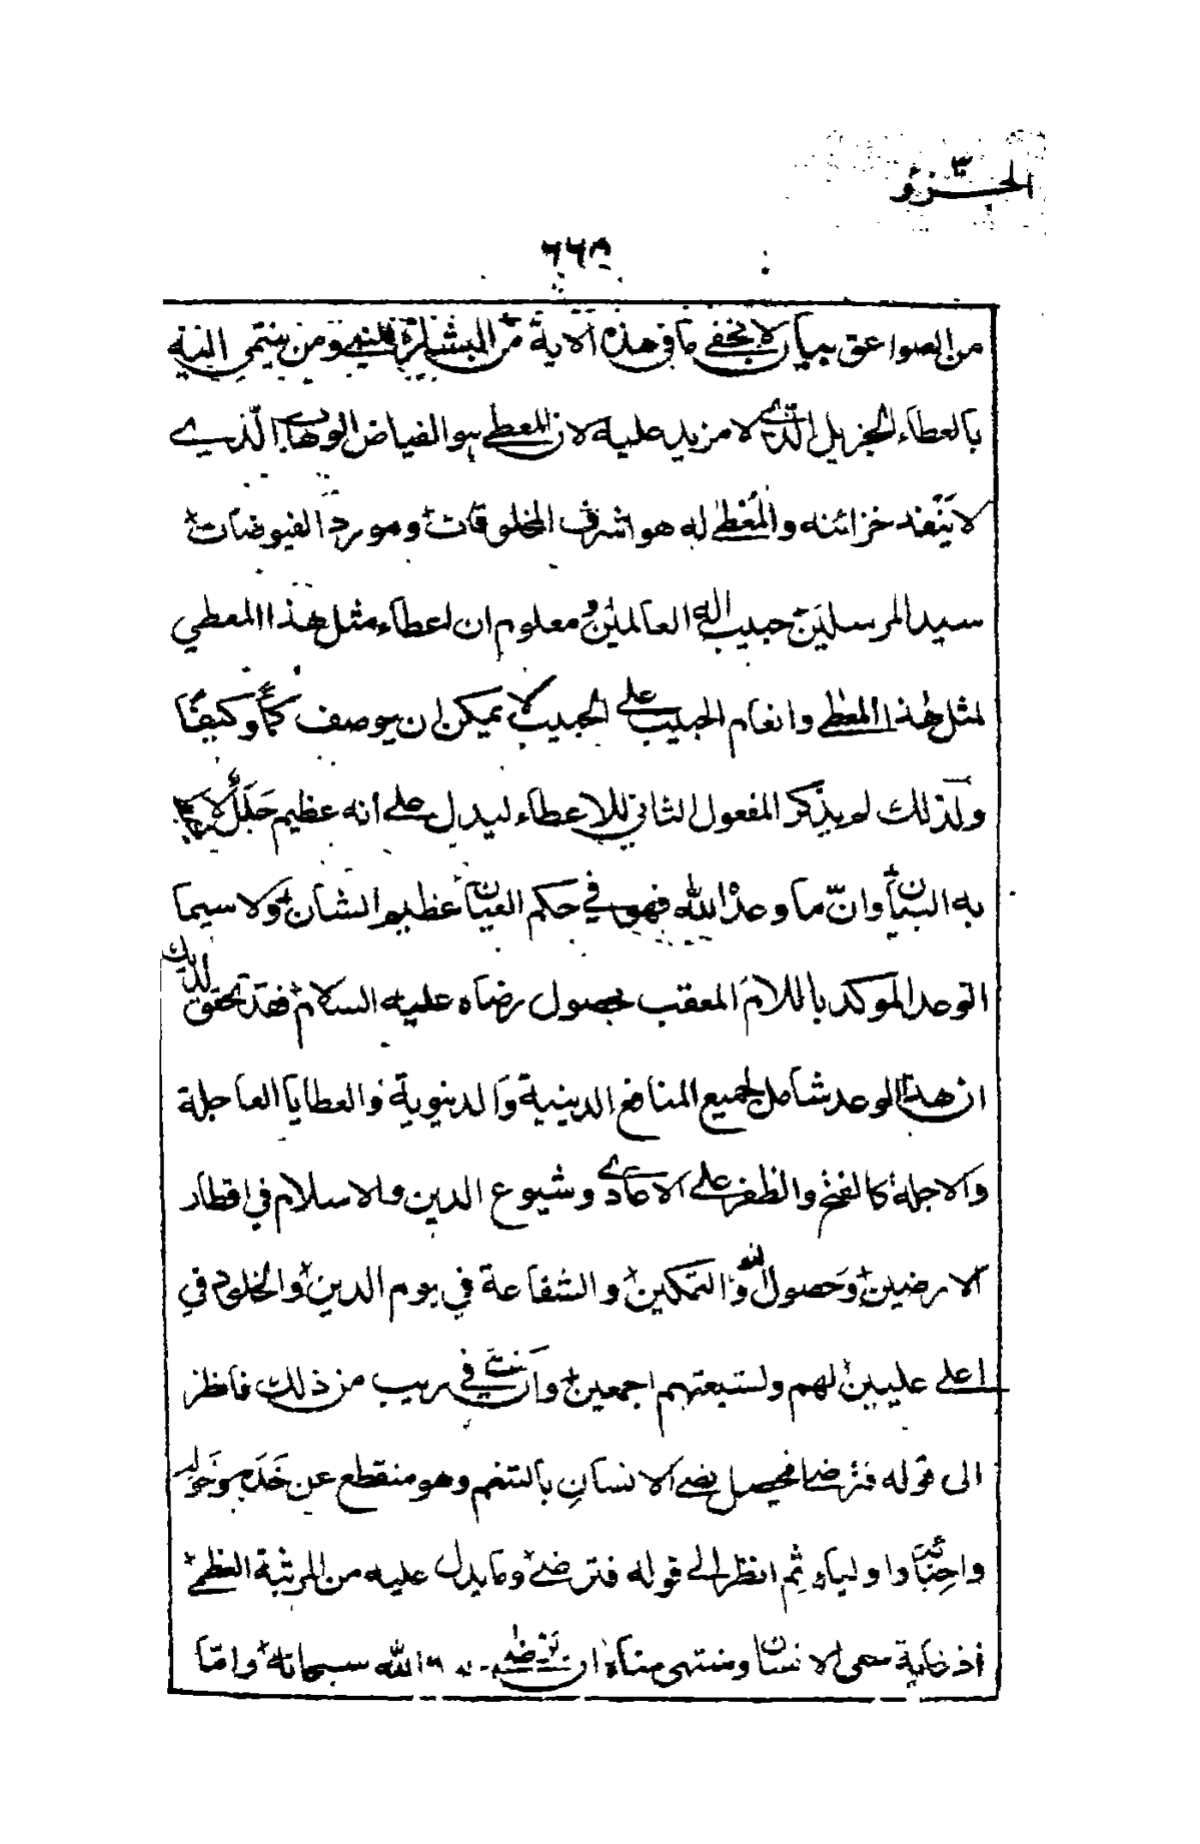 الجزؤ ٣٠
٦٦٥
من الصواعق بيان لا يخفى ما فى هذه الاية من البشارة للنبى ومن ينتمى اليه
بالعطاء الجزيل الذى لا مزيد عليه لان المعطى هو الفياض الوهاب الذي
لا ينفد خزائنه والمعطى له هو اشرف المخلوقات ومورد الفيوضات
سيد المرسلين حبيب اله العالمين ومعلوم ان اعطاء مثل هذا المعطي
لمثل هذا المعطى وانعام الحبيب على الحبيب لا يمكن ان يوصف كما وكيفا
ولذلك لم يذكر المفعول الثاني للاعطاء ليدل على انه عظيم جليل لا
به البيان وان ما وعد الله فهو في حكم العيان عظيم الشان ولا سيما
الوعد الموكد باللام المعقب بحصول رضاه عليه السلام فقد تحقق لديك
ان هذا الوعد شامل لجميع المنافع الدينية والدنيوية والعطايا العاجلة
والاجلة كالفتح والظفر على الاعادى وشيوع الدين والاسلام في اقطار
الارضين وحصول والتمكين والشفاعة في يوم الدين والخلود في
اعلى عليين لهم ولمتبعتهم اجمعين وان كنت في ريب من ذلك فانظر
الى قوله فترضى افيحصل رضى الانسان بالتنعم وهو منقطع عن خدمه وخوله
واحبائه واوليائه ثم انظر الى قوله فترضى وما يدل عليه من المرتبة العظمى
اذ غاية سعى الانسان ومنتهى مناه ان يرضى الله سبحانه واما